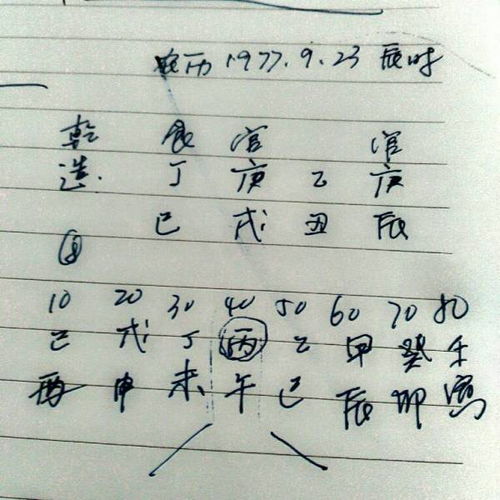 农历 1977.9.23 辰时
乾 食 官 官
造. 丁 庚 乙 庚
巳 戌 丑 辰
10 20 30 40 50 60 70 80
己 戊 丁 丙 乙 甲 癸 壬
酉 申 未 午 巳 辰 卯 寅